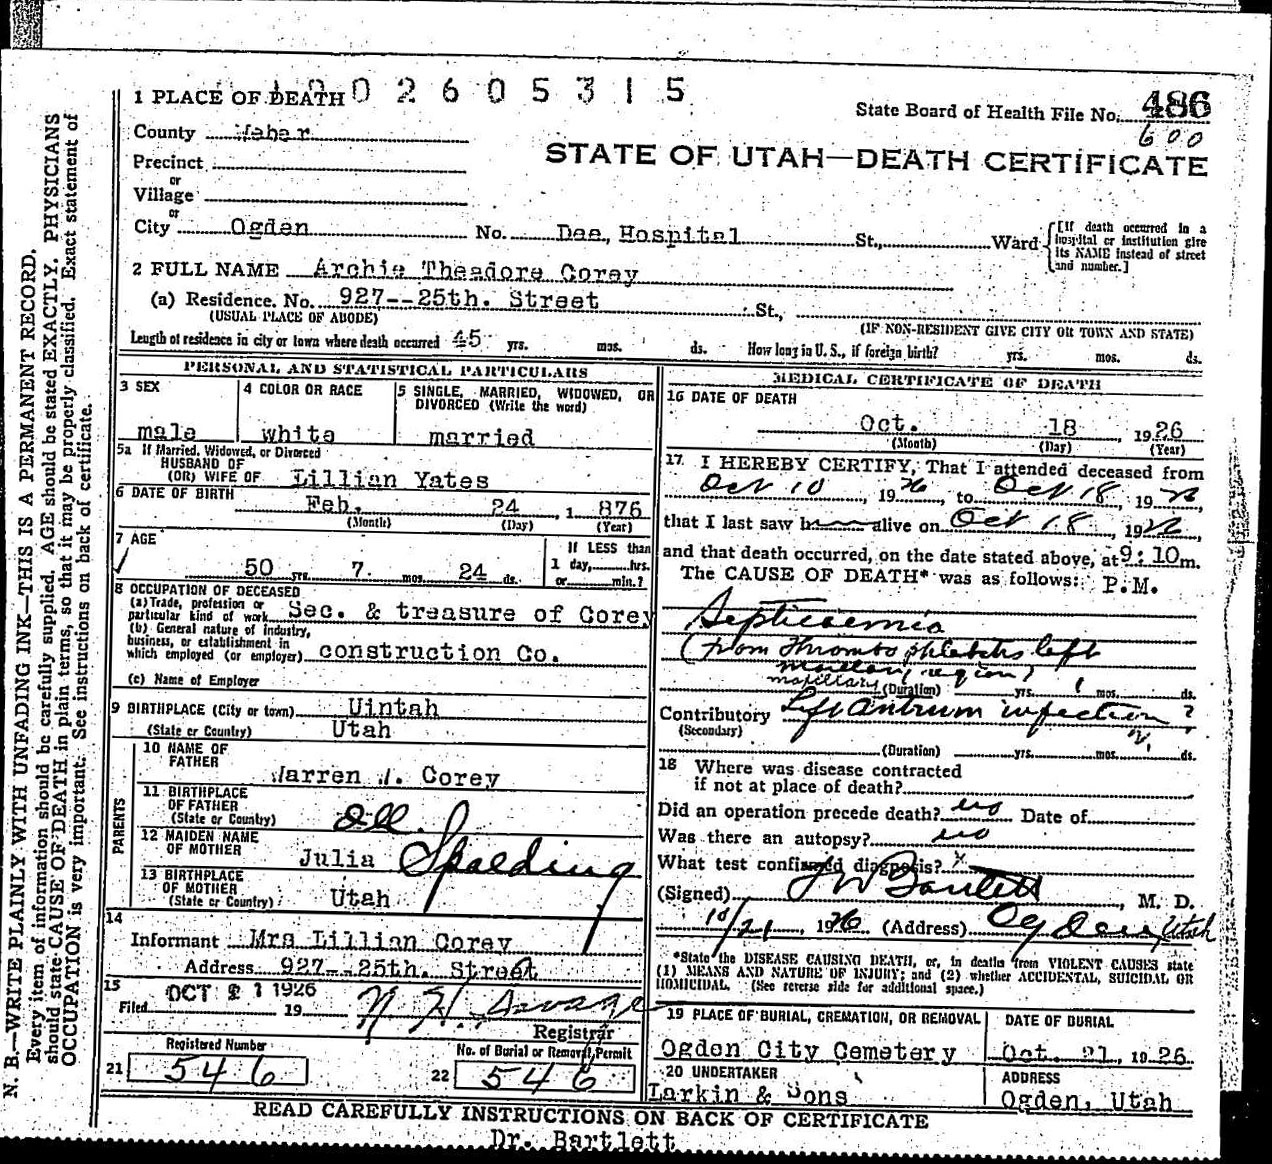 N. B.—WRITE PLAINLY WITH UNFADING INK—THIS IS A PERMANENT RECORD.
Every item of information should be carefully supplied. AGE should be stated EXACTLY. PHYSICIANS
should state CAUSE OF DEATH in plain terms, so that it may be properly classified. Exact statement of
OCCUPATION is very important. See instructions on back of certificate.
02605315
1 PLACE OF DEATH
State Board of Health File No. 486
600
County Weber
STATE OF UTAH—DEATH CERTIFICATE
Precinct
or
Village
or
City Ogden No. Dee, Hospital St., Ward
[If death occurred in a
hospital or institution give
its NAME instead of street
and number.]
2 FULL NAME Archie Theadore Corey
(a) Residence. No. 927--25th. Street St.,
(USUAL PLACE OF ABODE) (IF NON-RESIDENT GIVE CITY OR TOWN AND STATE)
Length of residence in city or town where death occurred 45 yrs. mos. ds. How long in U. S., if foreign birth? yrs. mos. ds.
PERSONAL AND STATISTICAL PARTICULARS
3 SEX
male
4 COLOR OR RACE
white
5 SINGLE, MARRIED, WIDOWED, OR
DIVORCED (Write the word)
married
5a If Married, Widowed, or Divorced
HUSBAND OF
(OR) WIFE OF Lillian Yates
6 DATE OF BIRTH Feb. 24, 1 876
(Month) (Day) (Year)
7 AGE
50 yrs. 7. mos. 24 ds.
If LESS than
1 day, hrs.
or min.?
8 OCCUPATION OF DECEASED
(a) Trade, profession or
particular kind of work Sec. & treasure of Corey
(b) General nature of industry,
business, or establishment in
which employed (or employer) construction Co.
(c) Name of Employer
9 BIRTHPLACE (City or town) Uintah
(State or Country) Utah
PARENTS
10 NAME OF
FATHER
Warren W. Corey
11 BIRTHPLACE
OF FATHER
(State or Country) Ill.
12 MAIDEN NAME
OF MOTHER Julia Spalding
13 BIRTHPLACE
OF MOTHER
(State or Country) Utah
14
Informant Mrs Lillian Corey
Address 927--25th. Street
15
Filed OCT 21 1926 19 N. H. Savage
Registrar
Registered Number
21 546
No. of Burial or Removal Permit
22 546
MEDICAL CERTIFICATE OF DEATH
16 DATE OF DEATH
Oct. 18, 1926
(Month) (Day) (Year)
17 I HEREBY CERTIFY, That I attended deceased from
Oct 10, 1926, to Oct 18, 1926
that I last saw h alive on Oct 18, 1926,
and that death occurred, on the date stated above, at 9:10 m.
The CAUSE OF DEATH* was as follows: P.M.
Septicaemia
(from Thrombo phlebitis left
maxillary region)
maxillary (Duration) yrs. 1 mos. ds.
Contributory Left Antrum infection ?
(Secondary)
(Duration) yrs. mos. ds.
18 Where was disease contracted
if not at place of death?
Did an operation precede death? no Date of
Was there an autopsy? no
What test confirmed diagnosis? x
(Signed) J W Bartlett, M. D.
10/21, 1926 (Address) Ogden, Utah
*State the DISEASE CAUSING DEATH, or, in deaths from VIOLENT CAUSES state
(1) MEANS AND NATURE OF INJURY; and (2) whether ACCIDENTAL, SUICIDAL OR
HOMICIDAL. (See reverse side for additional space.)
19 PLACE OF BURIAL, CREMATION, OR REMOVAL
Ogden City Cemetery
DATE OF BURIAL
Oct. 21, 1926
20 UNDERTAKER
Larkin & Sons
ADDRESS
Ogden, Utah
READ CAREFULLY INSTRUCTIONS ON BACK OF CERTIFICATE
Dr. Bartlett